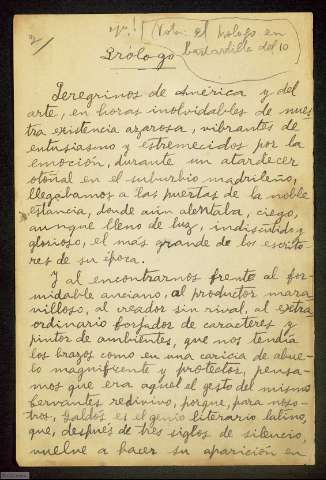 2/
ojo! ( Nota: el Prólogo en
bastardilla del 10
Prólogo
Peregrinos de América y del
arte, en horas inolvidables de nues
tra existencia azarosa, vibrantes de
entusiasmo y estremecidos por la
emoción, durante un atardecer
otoñal en el suburbio madrileño,
llegábamos a las puertas de la noble
estancia, donde aún alentaba, ciego,
aunque lleno de luz, indiscutido y
glorioso, el más grande de los escrito-
res de su época.
Y al encontrarnos frente al for-
midable anciano, al productor mara
villoso, al creador sin rival, al extra
ordinario forjador de caracteres y
pintor de ambientes, que nos tendía
los brazos como en una caricia de abue-
lo magnificente y protector, pensa-
mos que era aquel el gesto del mismo
Cervantes redivivo, porque, para noso-
tros, Galdós es el genio literario latino,
que, después de tres siglos de silencio,
vuelve a hacer su aparición en